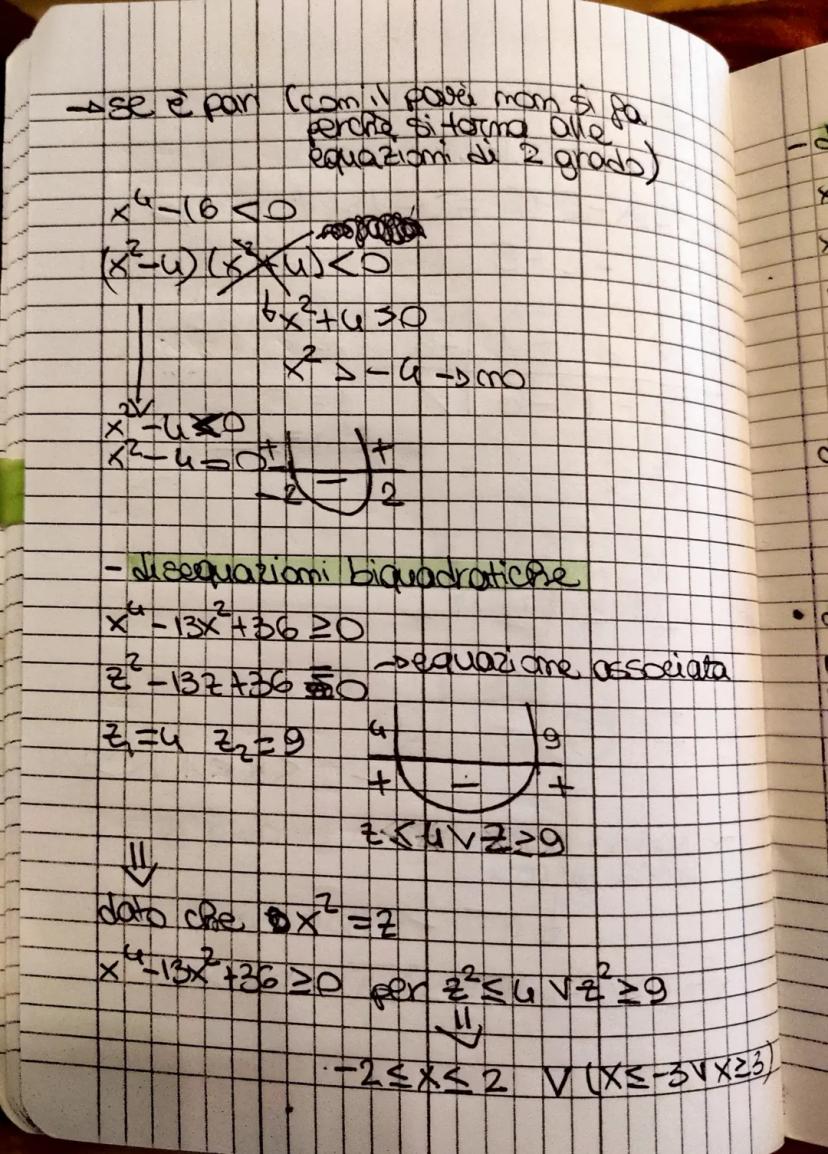 → se è pari (con il pari non si fa
perché si torna alle
equazioni di 2 grado)
x⁴-16<0
(x²-4)(x²+4)<0
↳x²+4>0
x²>-4→no
x²-4<0
x²-4=0
+ +
-2 - 2
- disequazioni biquadratiche
x⁴-13x²+36≥0
→equazione associata
z²-13z+36=0
z₁=4 z₂=9
4 9
+ - +
z≤4∨z≥9
⇓
dato che x²=z
x⁴-13x²+36≥0 per z²≤4∨z²≥9
⇓
-2≤x≤2 ∨ (x≤-3∨x≥3)